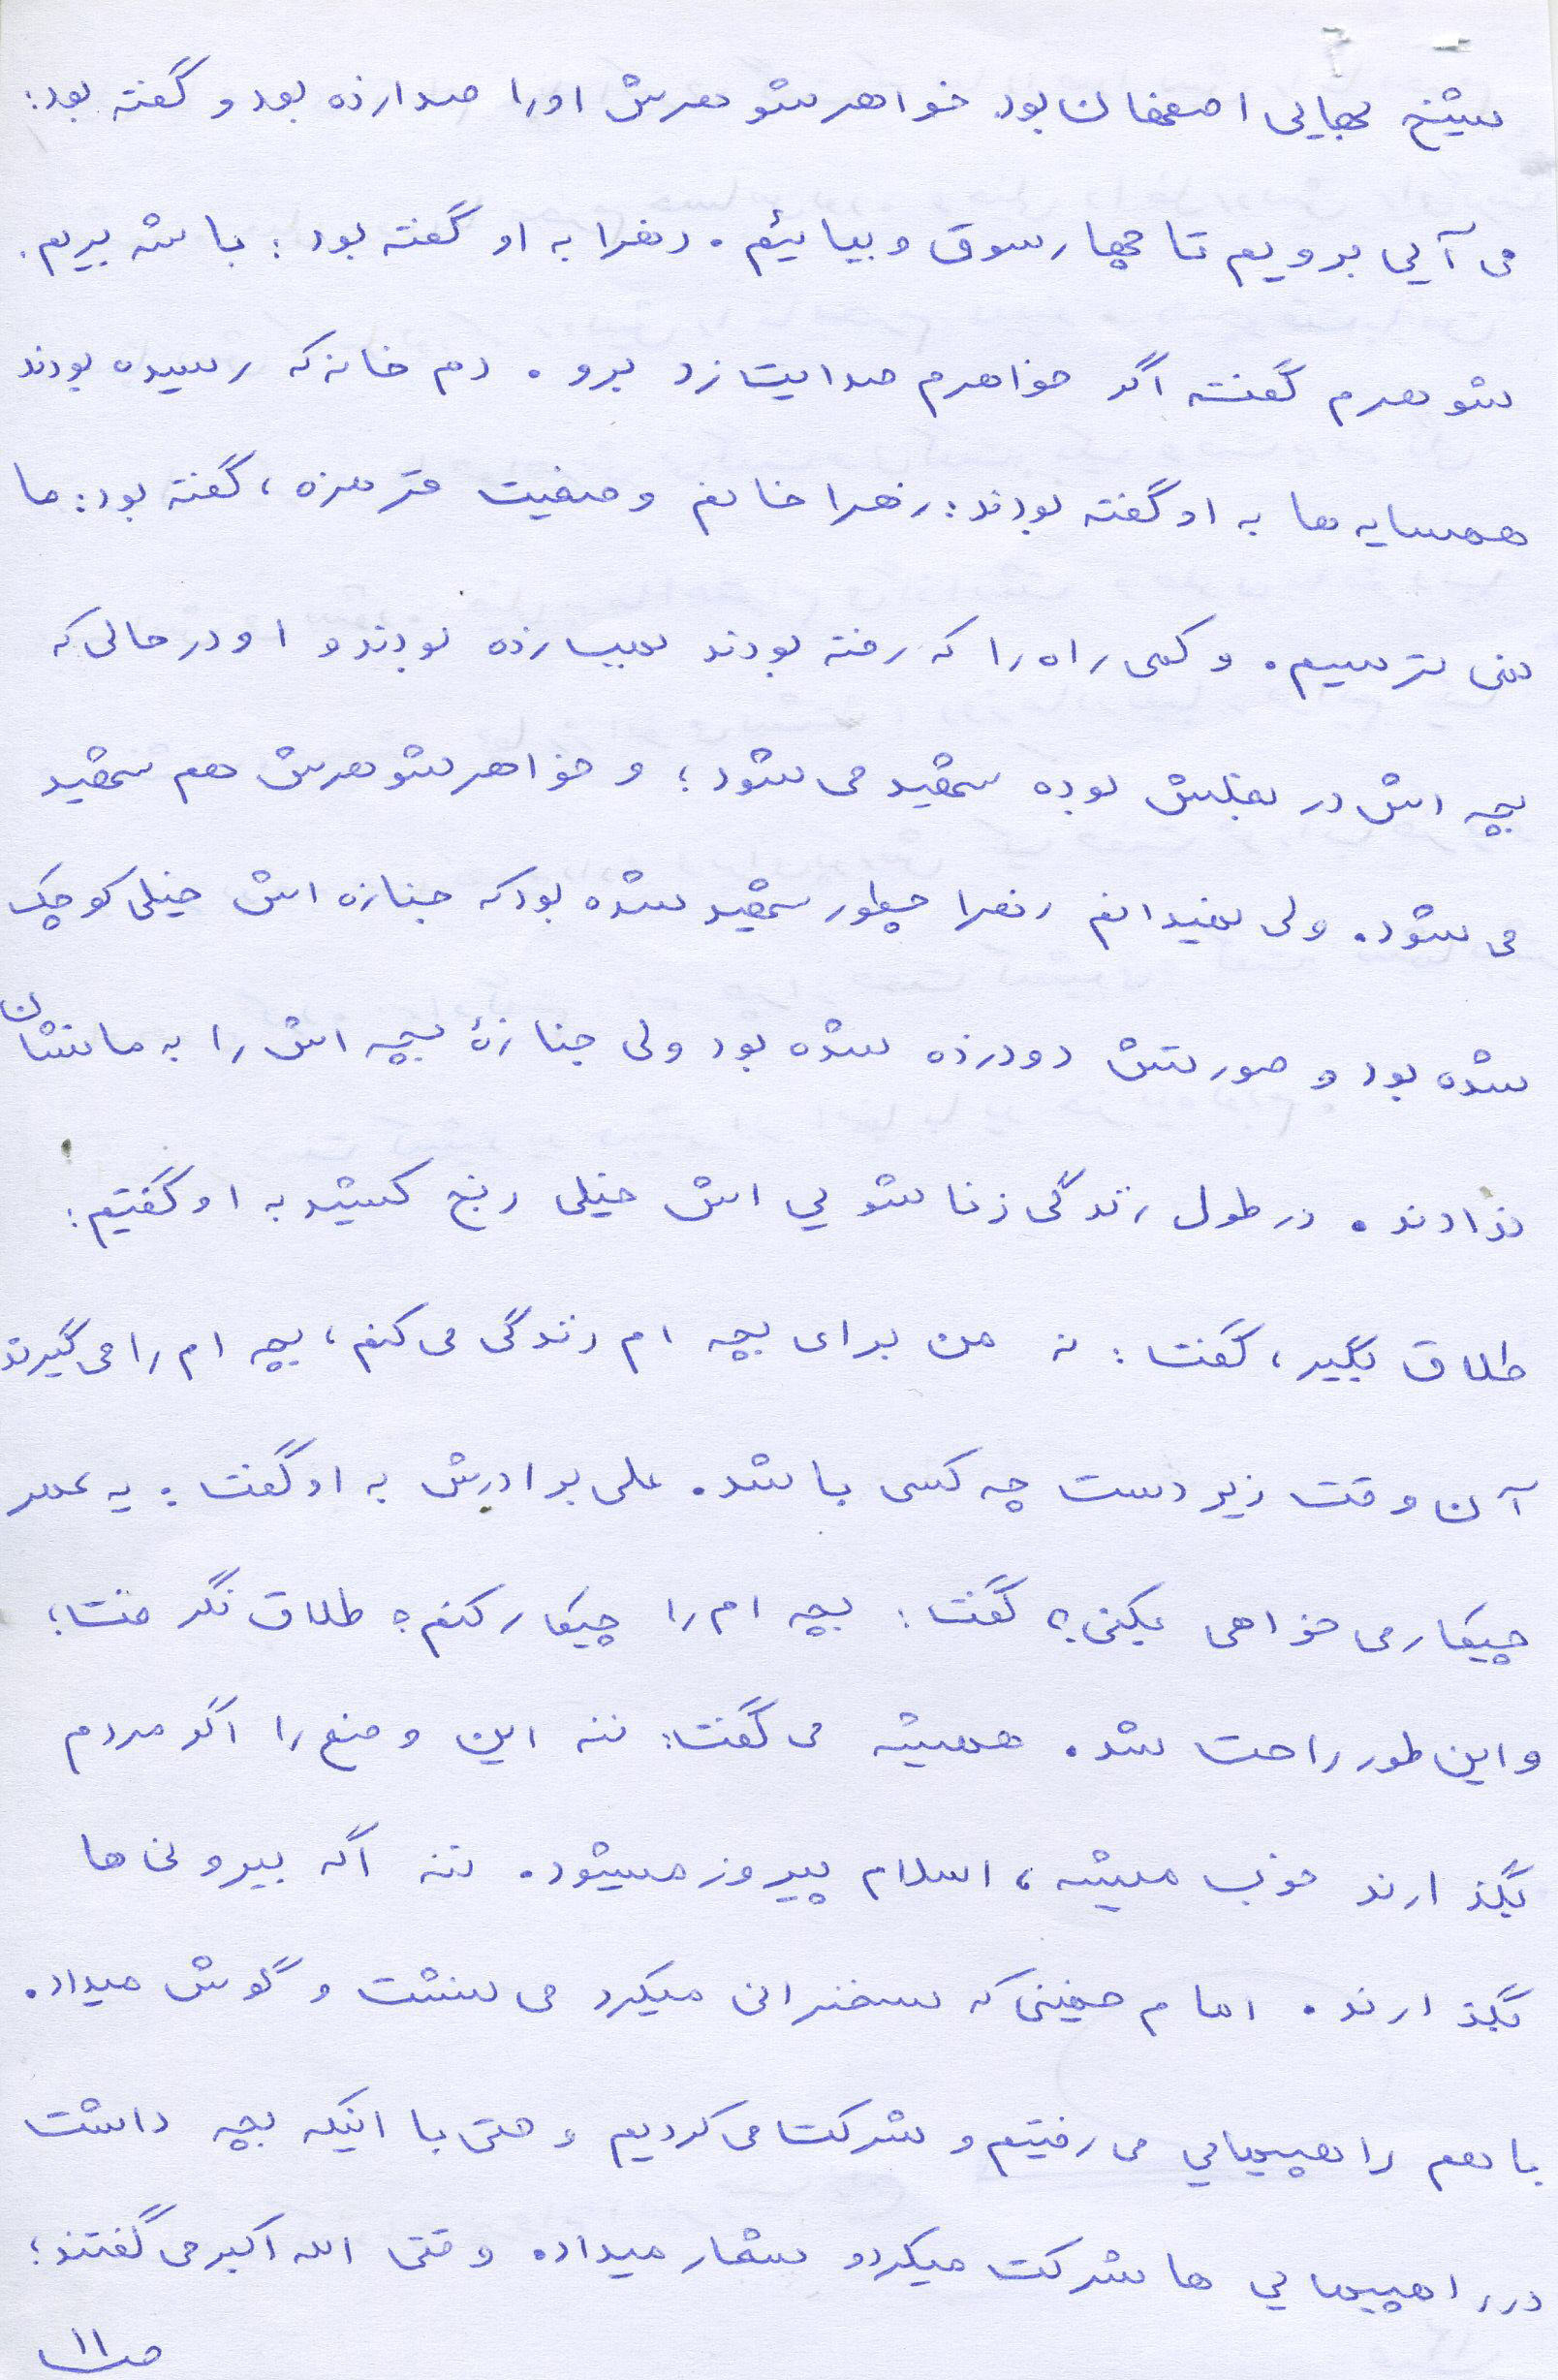 شیخ بهایی اصفهان بود. خواهر شوهرش او را صدا زده بود و گفته بود:
می آیی برویم تا چهارسوق و بیائیم. زهرا به او گفته بود: باشه بریم.
شوهرم گفته اگر خواهرم صدایت زد برو. دم خانه که رسیده بودند
همسایه ها به او گفته بودند: زهرا خانم وضعیت قرمزه، گفته بود: ما
نمی ترسیم. و کمی راه را که رفته بودند بمب زده بودند و او در حالی که
بچه اش در بغلش بوده شهید می شود؛ و خواهر شوهرش هم شهید
می شود. ولی نمیدانم زهرا چطور شهید شده بود که جنازه اش خیلی کوچک
شده بود و صورتش دود زده شده بود ولی جنازهٔ بچه اش را به ما نشان
ندادند. در طول زندگی زناشویی اش خیلی رنج کشید به او گفتیم:
طلاق بگیر، گفت: نه من برای بچه ام زندگی می کنم، بچه ام را می گیرند
آن وقت زیر دست چه کسی باشد. علی برادرش به او گفت: یه عمر
چیکار می خواهی بکنی؟ گفت: بچه ام را چیکار کنم؟ طلاق نگرفت؛
و این طور راحت شد. همیشه می گفت: ننه این وضع را اگر مردم
بگذارند خوب میشه، اسلام پیروز میشود. ننه اگه بیرونی ها
بگذارند. امام خمینی که سخنرانی میکرد می نشست و گوش میداد.
با هم راهپیمایی می رفتیم و شرکت می کردیم و حتی با اینکه بچه داشت
در راهپیمایی ها شرکت میکرد و شعار میداد. وقتی الله اکبر می گفتند؛
ص ۱۱